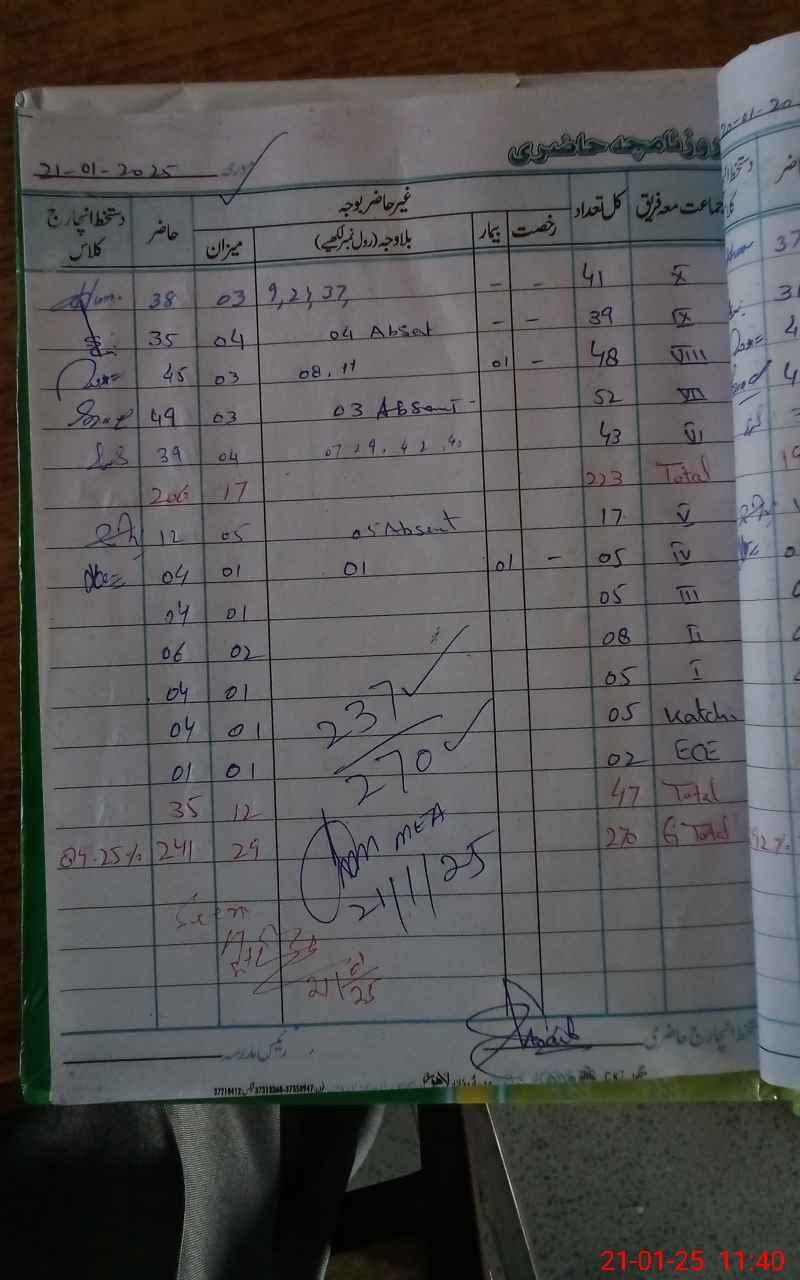 روزنامچہ حاضری
مورخہ 21-01-2025
جماعت معہ فریق کل تعداد غیر حاضر بوجہ حاضر دستخط انچارج کلاس
رخصت بیمار بلاوجہ (رول نمبر لکھیے) میزان
X 41 - - 9, 21, 37, 03 38
IX 39 - - 04 Absat 04 35
VIII 48 - 01 08, 11 03 45
VII 52 03 Absent - 03 49
VI 43 04 39
Total 223 17 206
V 17 05 Absent 05 12
IV 05 - 01 01 01 04
III 05 01 04
II 08 02 06
I 05 01 04
Katchi 05 01 04
ECE 02 01 01
Total 47 12 35
G Total 270 29 241 89.25%
237
270
MEA
21/1/25
Seen
21/1/25
دستخط انچارج حاضری
رئیس مدرسہ
20-01-20
حاضر
37
92%
21-01-25 11:40